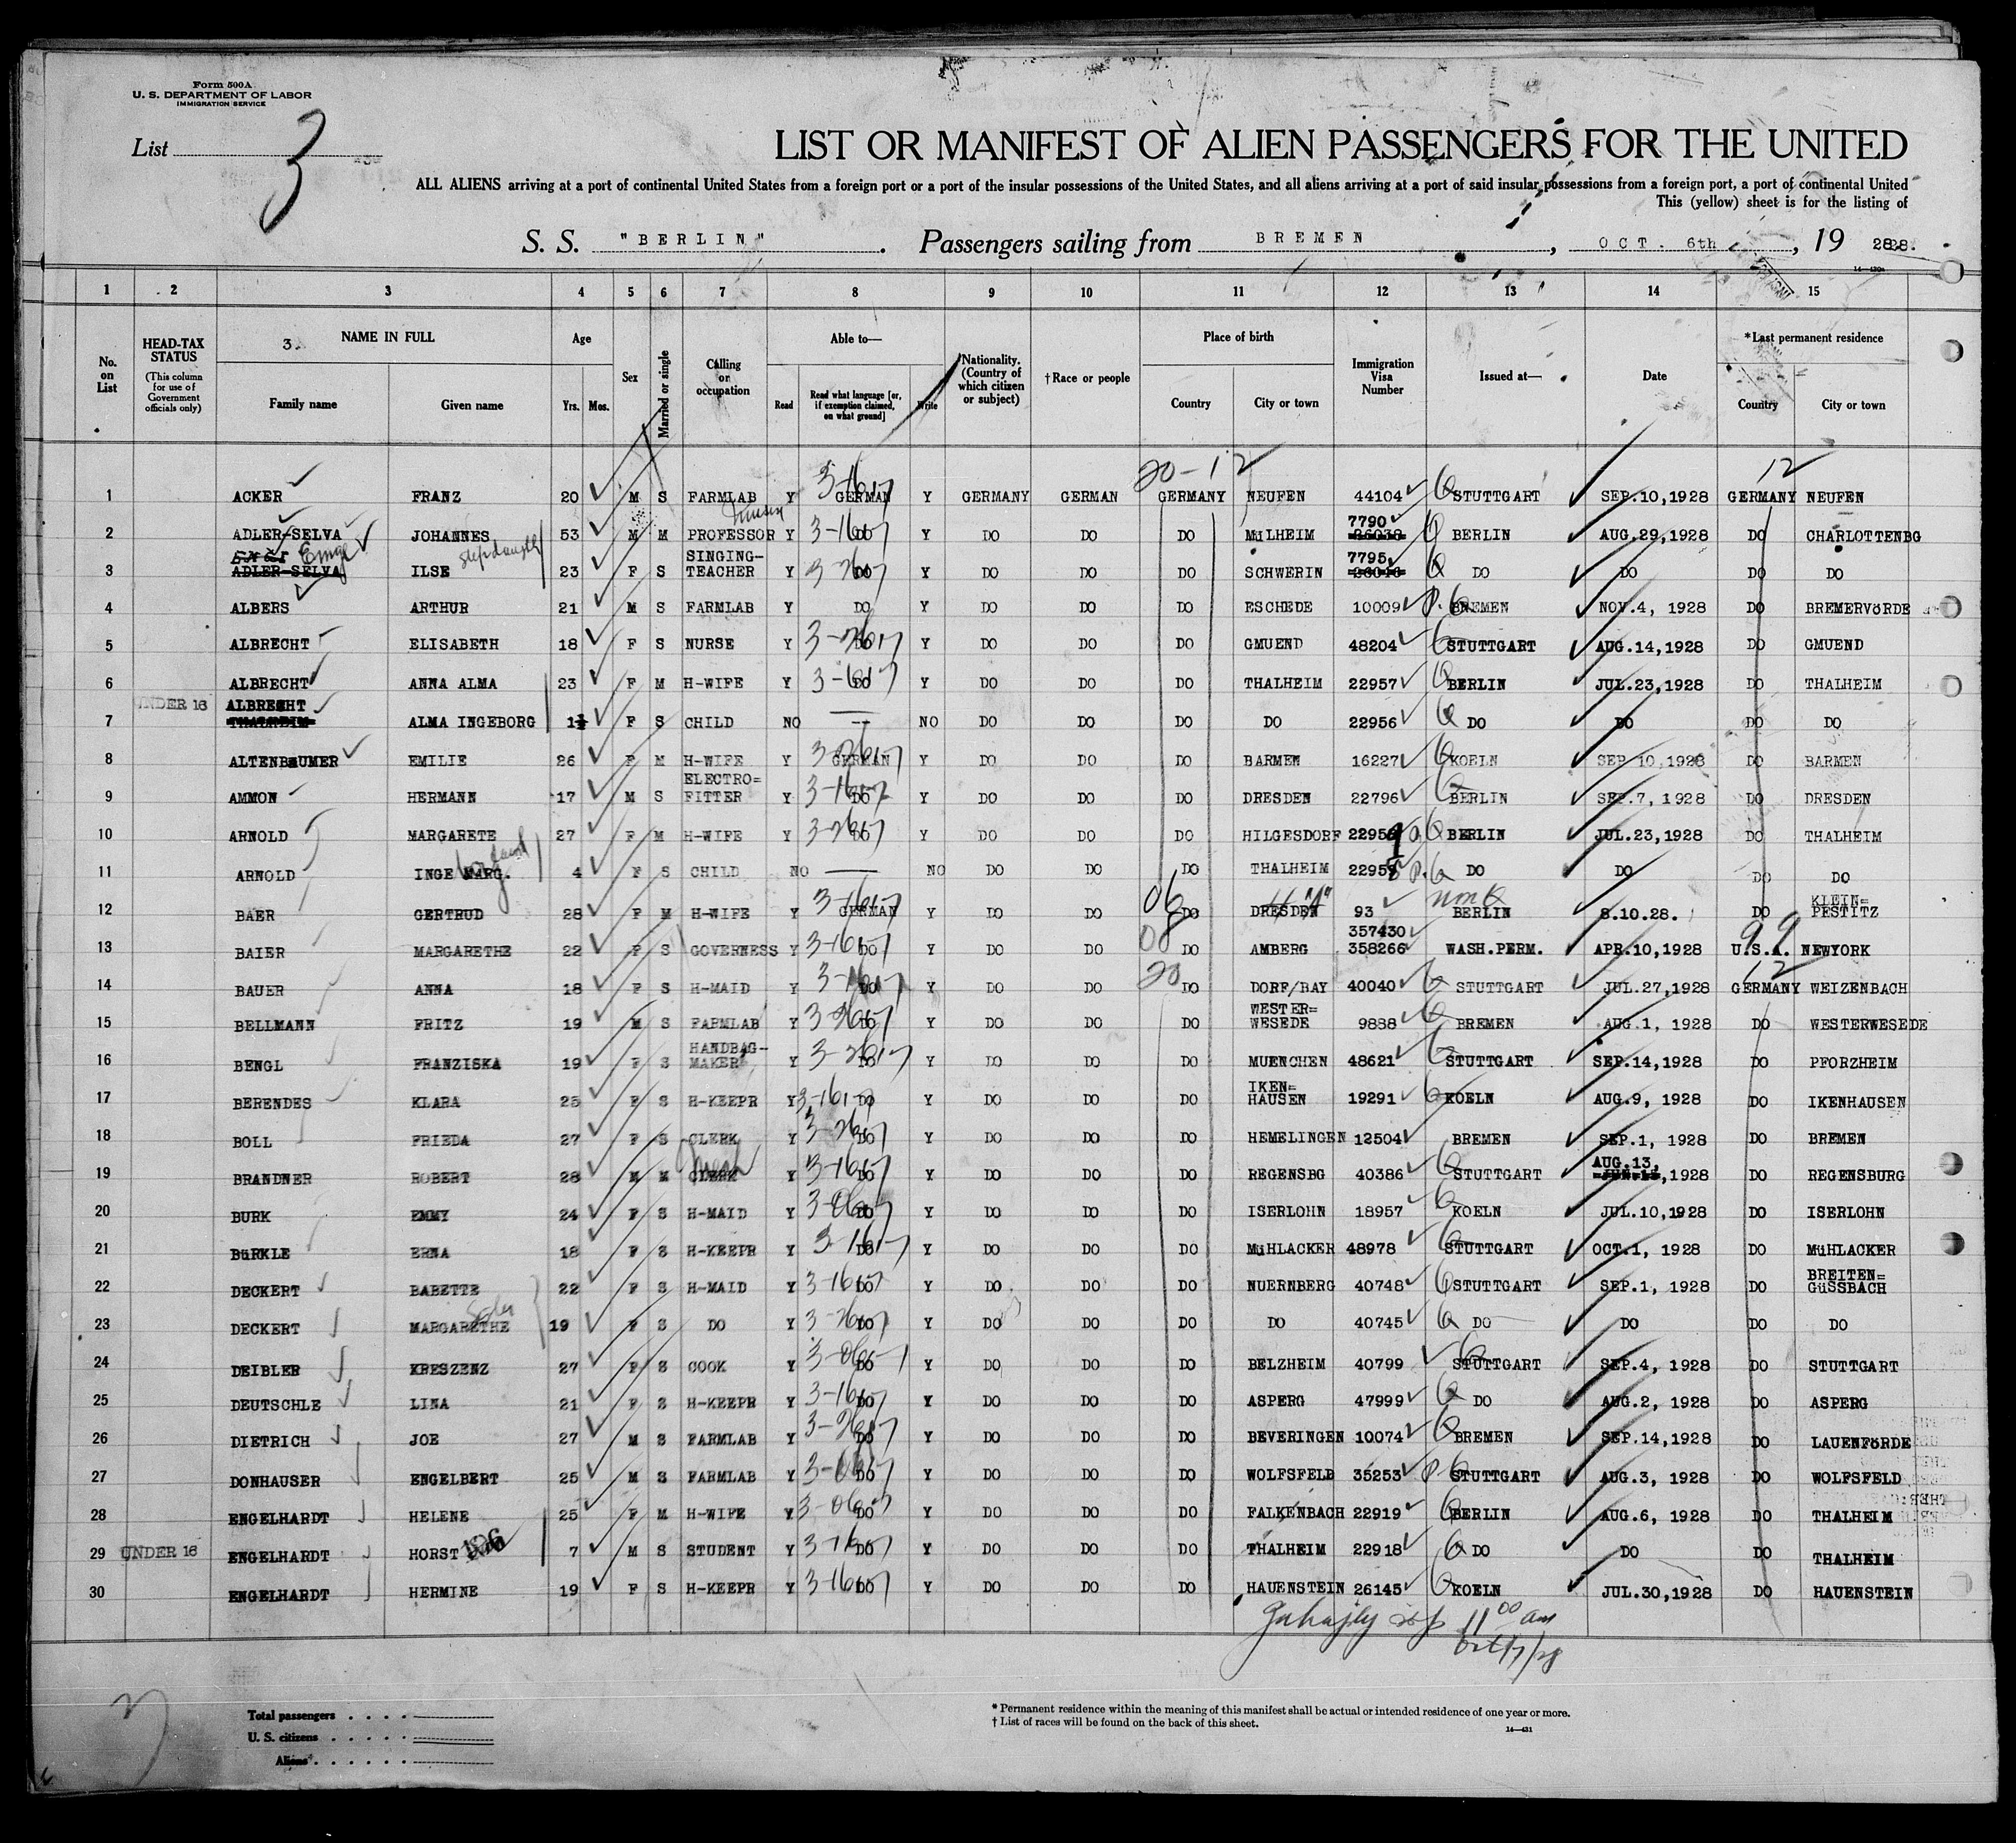 Form 500A
U. S. DEPARTMENT OF LABOR
IMMIGRATION SERVICE
List 3
LIST OR MANIFEST OF ALIEN PASSENGERS FOR THE UNITED
ALL ALIENS arriving at a port of continental United States from a foreign port or a port of the insular possessions of the United States, and all aliens arriving at a port of said insular possessions from a foreign port, a port of continental United
This (yellow) sheet is for the listing of
S. S. "BERLIN". Passengers sailing from BREMEN, OCT. 6th, 19 28.
1 2 3 4 5 6 7 8 9 10 11 12 13 14 15
No. on List
HEAD-TAX STATUS (This column for use of Government officials only)
3. NAME IN FULL
Family name Given name
Age Yrs. Mos.
Sex
Married or single
Calling or occupation
Able to—
Read Read what language [or, if exemption claimed, on what ground] Write
Nationality. (Country of which citizen or subject)
†Race or people
Place of birth
Country City or town
Immigration Visa Number
Issued at—
Date
*Last permanent residence
Country City or town
20-12 12
1 ACKER FRANZ 20 M S FARMLAB Y GERMAN Y GERMANY GERMAN GERMANY NEUFEN 44104 STUTTGART SEP.10,1928 GERMANY NEUFEN
2 ADLER-SELVA JOHANNES 53 M M PROFESSOR Y DO Y DO DO DO MüLHEIM 7790 BERLIN AUG.29,1928 DO CHARLOTTENBG
3 ADLER-SELVA ILSE 23 F S SINGING-TEACHER Y DO Y DO DO DO SCHWERIN 7795 DO DO DO DO
4 ALBERS ARTHUR 21 M S FARMLAB Y DO Y DO DO DO ESCHEDE 10009 BREMEN NOV.4, 1928 DO BREMERVöRDE
5 ALBRECHT ELISABETH 18 F S NURSE Y DO Y DO DO DO GMUEND 48204 STUTTGART AUG.14,1928 DO GMUEND
6 ALBRECHT ANNA ALMA 23 F M H-WIFE Y DO Y DO DO DO THALHEIM 22957 BERLIN JUL.23,1928 DO THALHEIM
7 UNDER 16 ALBRECHT ALMA INGEBORG F S CHILD NO -- NO DO DO DO DO 22956 DO DO DO DO
8 ALTENBäUMER EMILIE 26 F M H-WIFE Y GERMAN Y DO DO DO BARMEN 16227 KOELN SEP 10,1928 DO BARMEN
9 AMMON HERMANN 17 M S ELECTRO=FITTER Y DO Y DO DO DO DRESDEN 22796 BERLIN SEP.7, 1928 DO DRESDEN
10 ARNOLD MARGARETE 27 F M H-WIFE Y DO Y DO DO DO HILGESDORF BERLIN JUL.23,1928 DO THALHEIM
11 ARNOLD INGE MARG. 4 F S CHILD NO NO DO DO DO THALHEIM 22958 DO DO DO DO
12 BAER GERTRUD 28 F M H-WIFE Y GERMAN Y DO DO DO DRESDEN 93 BERLIN 8.10.28. DO KLEIN=PESTITZ
13 BAIER MARGARETHE 22 F S GOVERNESS Y DO Y DO DO DO AMBERG 357430 358266 WASH.PERM. APR.10,1928 U.S.A. NEWYORK
14 BAUER ANNA 18 F S H-MAID Y DO Y DO DO DO DORF/BAY 40040 STUTTGART JUL.27,1928 GERMANY WEIZENBACH
15 BELLMANN FRITZ 19 M S FARMLAB Y DO Y DO DO DO WESTER=WESEDE 9888 BREMEN AUG.1, 1928 DO WESTERWESEDE
16 BENGL FRANZISKA 19 F S HANDBAG-MAKER Y DO Y DO DO DO MUENCHEN 48621 STUTTGART SEP.14,1928 DO PFORZHEIM
17 BERENDES KLARA 25 F S H-KEEPR Y DO Y DO DO DO IKEN=HAUSEN 19291 KOELN AUG.9, 1928 DO IKENHAUSEN
18 BOLL FRIEDA 27 F S CLERK Y DO Y DO DO DO HEMELINGEN 12504 BREMEN SEP.1, 1928 DO BREMEN
19 BRANDNER ROBERT 28 M M CLERK Y DO Y DO DO DO REGENSBG 40386 STUTTGART AUG.13,1928 DO REGENSBURG
20 BURK EMMY 24 F S H-MAID Y DO Y DO DO DO ISERLOHN 18957 KOELN JUL.10,1928 DO ISERLOHN
21 BüRKLE ERNA 18 F S H-KEEPR Y DO Y DO DO DO MüHLACKER 48978 STUTTGART OCT.1, 1928 DO MüHLACKER
22 DECKERT BABETTE 22 F S H-MAID Y DO Y DO DO DO NUERNBERG 40748 STUTTGART SEP.1, 1928 DO BREITEN=GüSSBACH
23 DECKERT MARGARETHE 19 F S DO Y DO Y DO DO DO DO 40745 DO DO DO DO
24 DEIBLER KRESZENZ 27 F S COOK Y DO Y DO DO DO BELZHEIM 40799 STUTTGART SEP.4, 1928 DO STUTTGART
25 DEUTSCHLE LINA 21 F S H-KEEPR Y DO Y DO DO DO ASPERG 47999 DO AUG.2, 1928 DO ASPERG
26 DIETRICH JOE 27 M S FARMLAB Y DO Y DO DO DO BEVERINGEN 10074 BREMEN SEP.14,1928 DO LAUENFöRDE
27 DONHAUSER ENGELBERT 25 M S FARMLAB Y DO Y DO DO DO WOLFSFELD 35253 STUTTGART AUG.3, 1928 DO WOLFSFELD
28 ENGELHARDT HELENE 25 F M H-WIFE Y DO Y DO DO DO FALKENBACH 22919 BERLIN AUG.6, 1928 DO THALHEIM
29 UNDER 16 ENGELHARDT HORST 7 M S STUDENT Y DO Y DO DO DO THALHEIM 22918 DO DO DO THALHEIM
30 ENGELHARDT HERMINE 19 F S H-KEEPR Y DO Y DO DO DO HAUENSTEIN 26145 KOELN JUL.30,1928 DO HAUENSTEIN
11 00 am
Oct 17/28
Total passengers
U. S. citizens
Aliens
* Permanent residence within the meaning of this manifest shall be actual or intended residence of one year or more.
† List of races will be found on the back of this sheet.
14—431